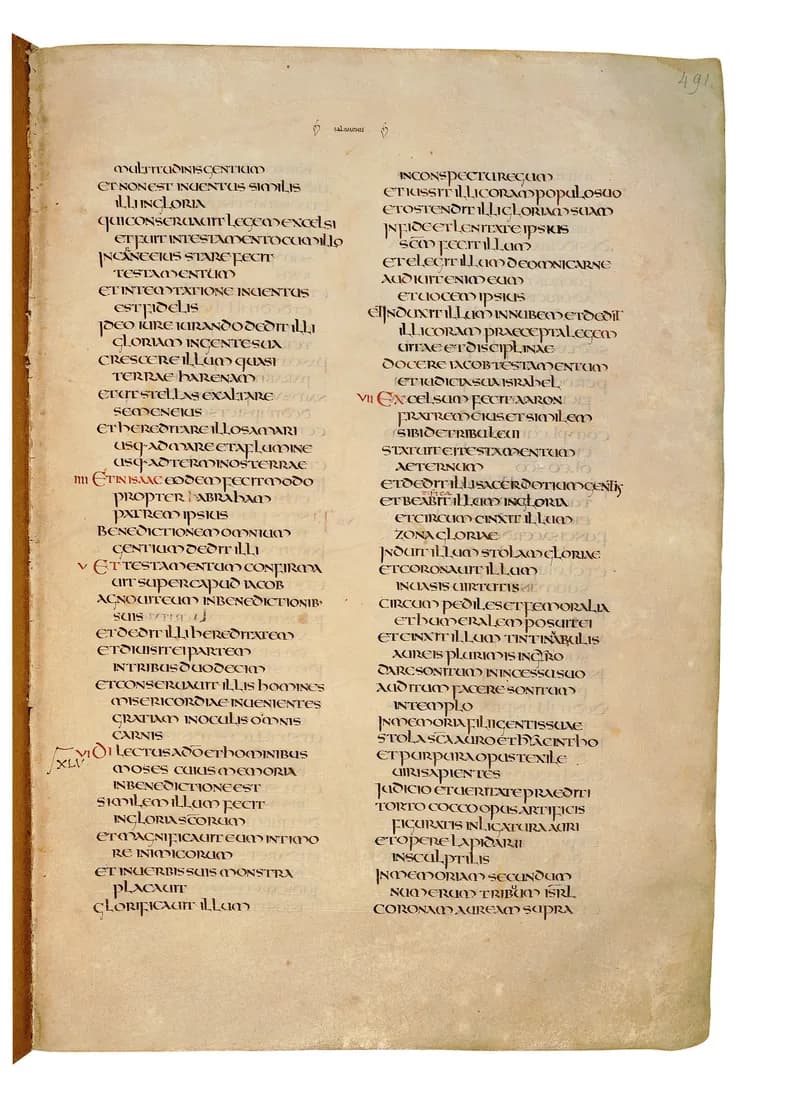 491
SALOMONIS
MULTITUDINIS GENTIUM
ET NON EST INUENTUS SIMILIS
ILLI IN GLORIA
QUI CONSERUAUIT LEGEM EXCELSI
ET FUIT IN TESTAMENTO CUM ILLO
IN CARNE EIUS STARE FECIT
TESTAMENTUM
ET IN TEMTATIONE INUENTUS
EST FIDELIS
IDEO IURE IURANDO DEDIT ILLI
GLORIAM IN GENTE SUA
CRESCERE ILLUM QUASI
TERRAE HARENAM
ET UT STELLAS EXALTARE
SEMEN EIUS
ET HEREDITARE ILLOS A MARI
USQ· AD MARE ET A FLUMINE
USQ· AD TERMINOS TERRAE
IIII ET IN ISAAC EODEM FECIT MODO
PROPTER ABRAHAM
PATREM IPSIUS
BENEDICTIONEM OMNIUM
GENTIUM DEDIT ILLI
V ET TESTAMENTUM CONFIRMA
UIT SUPER CAPUD IACOB
AGNOUIT EUM IN BENEDICTIONIB·
SUIS
ET DEDIT ILLI HEREDITATEM
ET DIUISIT EI PARTEM
IN TRIBUS DUODECIM
ET CONSERUAUIT ILLIS HOMINES
MISERICORDIAE INUENIENTES
GRATIAM IN OCULIS OMNIS
CARNIS
XLV VI DILECTUS A DŌ ET HOMINIBUS
MOSES CUIUS MEMORIA
IN BENEDICTIONE EST
SIMILEM ILLUM FECIT
IN GLORIA SCŌRUM
ET MAGNIFICAUIT EUM IN TIMO
RE INIMICORUM
ET IN UERBIS SUIS MONSTRA
PLACAUIT
GLORIFICAUIT ILLUM
IN CONSPECTU REGUM
ET IUSSIT ILLI CORAM POPULO SUO
ET OSTENDIT ILLI GLORIAM SUAM
IN FIDE ET LENITATE IPSIUS
SCM̄ FECIT ILLUM
ET ELEGIT ILLUM DE OMNI CARNE
AUDIUIT ENIM EUM
ET UOCEM IPSIUS
ET INDUXIT ILLUM IN NUBEM ET DEDIT
ILLI CORAM PRAECEPTA LEGEM
UITAE ET DISCIPLINAE
DOCERE IACOB TESTAMENTUM
ET IUDICIA SUA ISRAHEL
VII EXCELSUM FECIT AARON
FRATREM EIUS ET SIMILEM
SIBI DE TRIBU LEUI
STATUIT EI TESTAMENTUM
AETERNUM
ET DEDIT ILLI SACERDOTIUM GENTIS
ET BEABIT ILLUM IN GLORIA
ET CIRCUM CINXIT ILLUM
ZONA GLORIAE
INDUIT ILLUM STOLAM GLORIAE
ET CORONAUIT ILLUM
IN UASIS UIRTUTIS
CIRCUM PEDILES ET FEMORALIA
ET HUMERALEM POSUIT EI
ET CINXIT ILLUM TINTINABULIS
AUREIS PLURIMIS IN GYRO
DARE SONITUM IN INCESSU SUO
AUDITUM FACERE SONITUM
IN TEMPLO
IN MEMORIA FILII GENTIS SUAE
STOLA SCĀ AURO ET HYACINTHO
ET PURPURA OPUS TEXILE
UIRI SAPIENTES
IUDICIO ET UERITATE PRAEDITI
TORTO COCCO OPUS ARTIFICIS
FIGURATIS IN LIGATURA AURI
ET OPERE LAPIDARII
INSCULPTILIS
IN MEMORIAM SECUNDUM
NUMERUM TRIBUUM ISRL
CORONAM AUREAM SUPRA